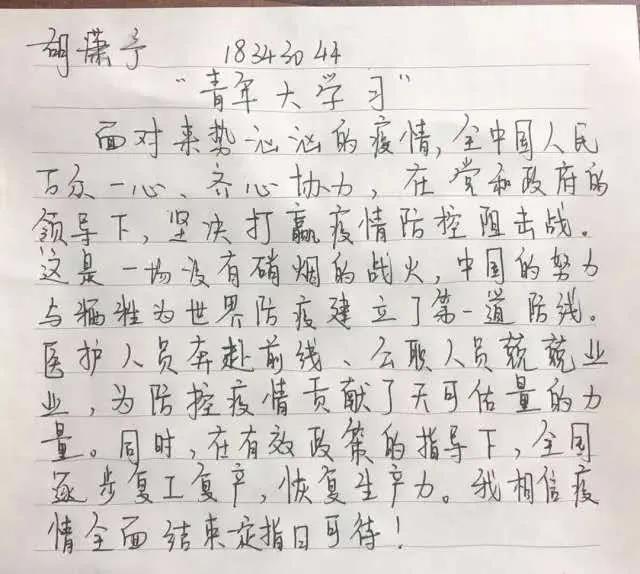 胡潇予 18343044
“青年大学习”
面对来势汹汹的疫情,全中国人民
万众一心、齐心协力,在党和政府的
领导下,坚决打赢疫情防控阻击战。
这是一场没有硝烟的战火,中国的努力
与牺牲为世界防疫建立了第一道防线。
医护人员奔赴前线、公职人员兢兢业
业,为防控疫情贡献了无可估量的力
量。同时,在有效政策的指导下,全国
逐步复工复产,恢复生产力。我相信疫
情全面结束定指日可待!